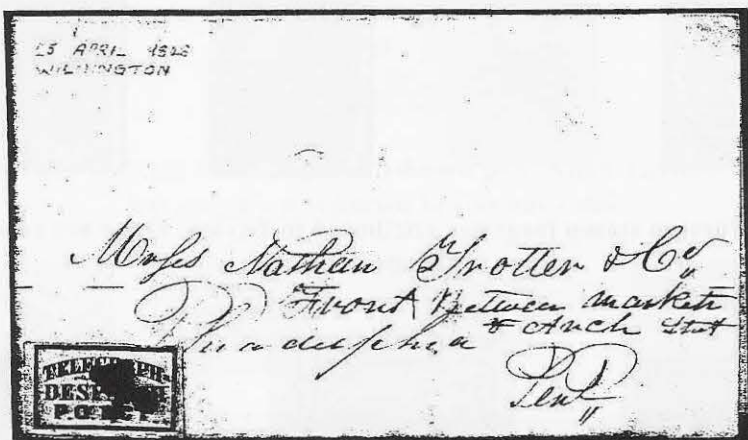 APRIL
WILMINGTON
Nathan Trotter & Co
Front Between market
& Arch Street
Philadelphia
TELEGRAPH
DESPATCH
P.O.